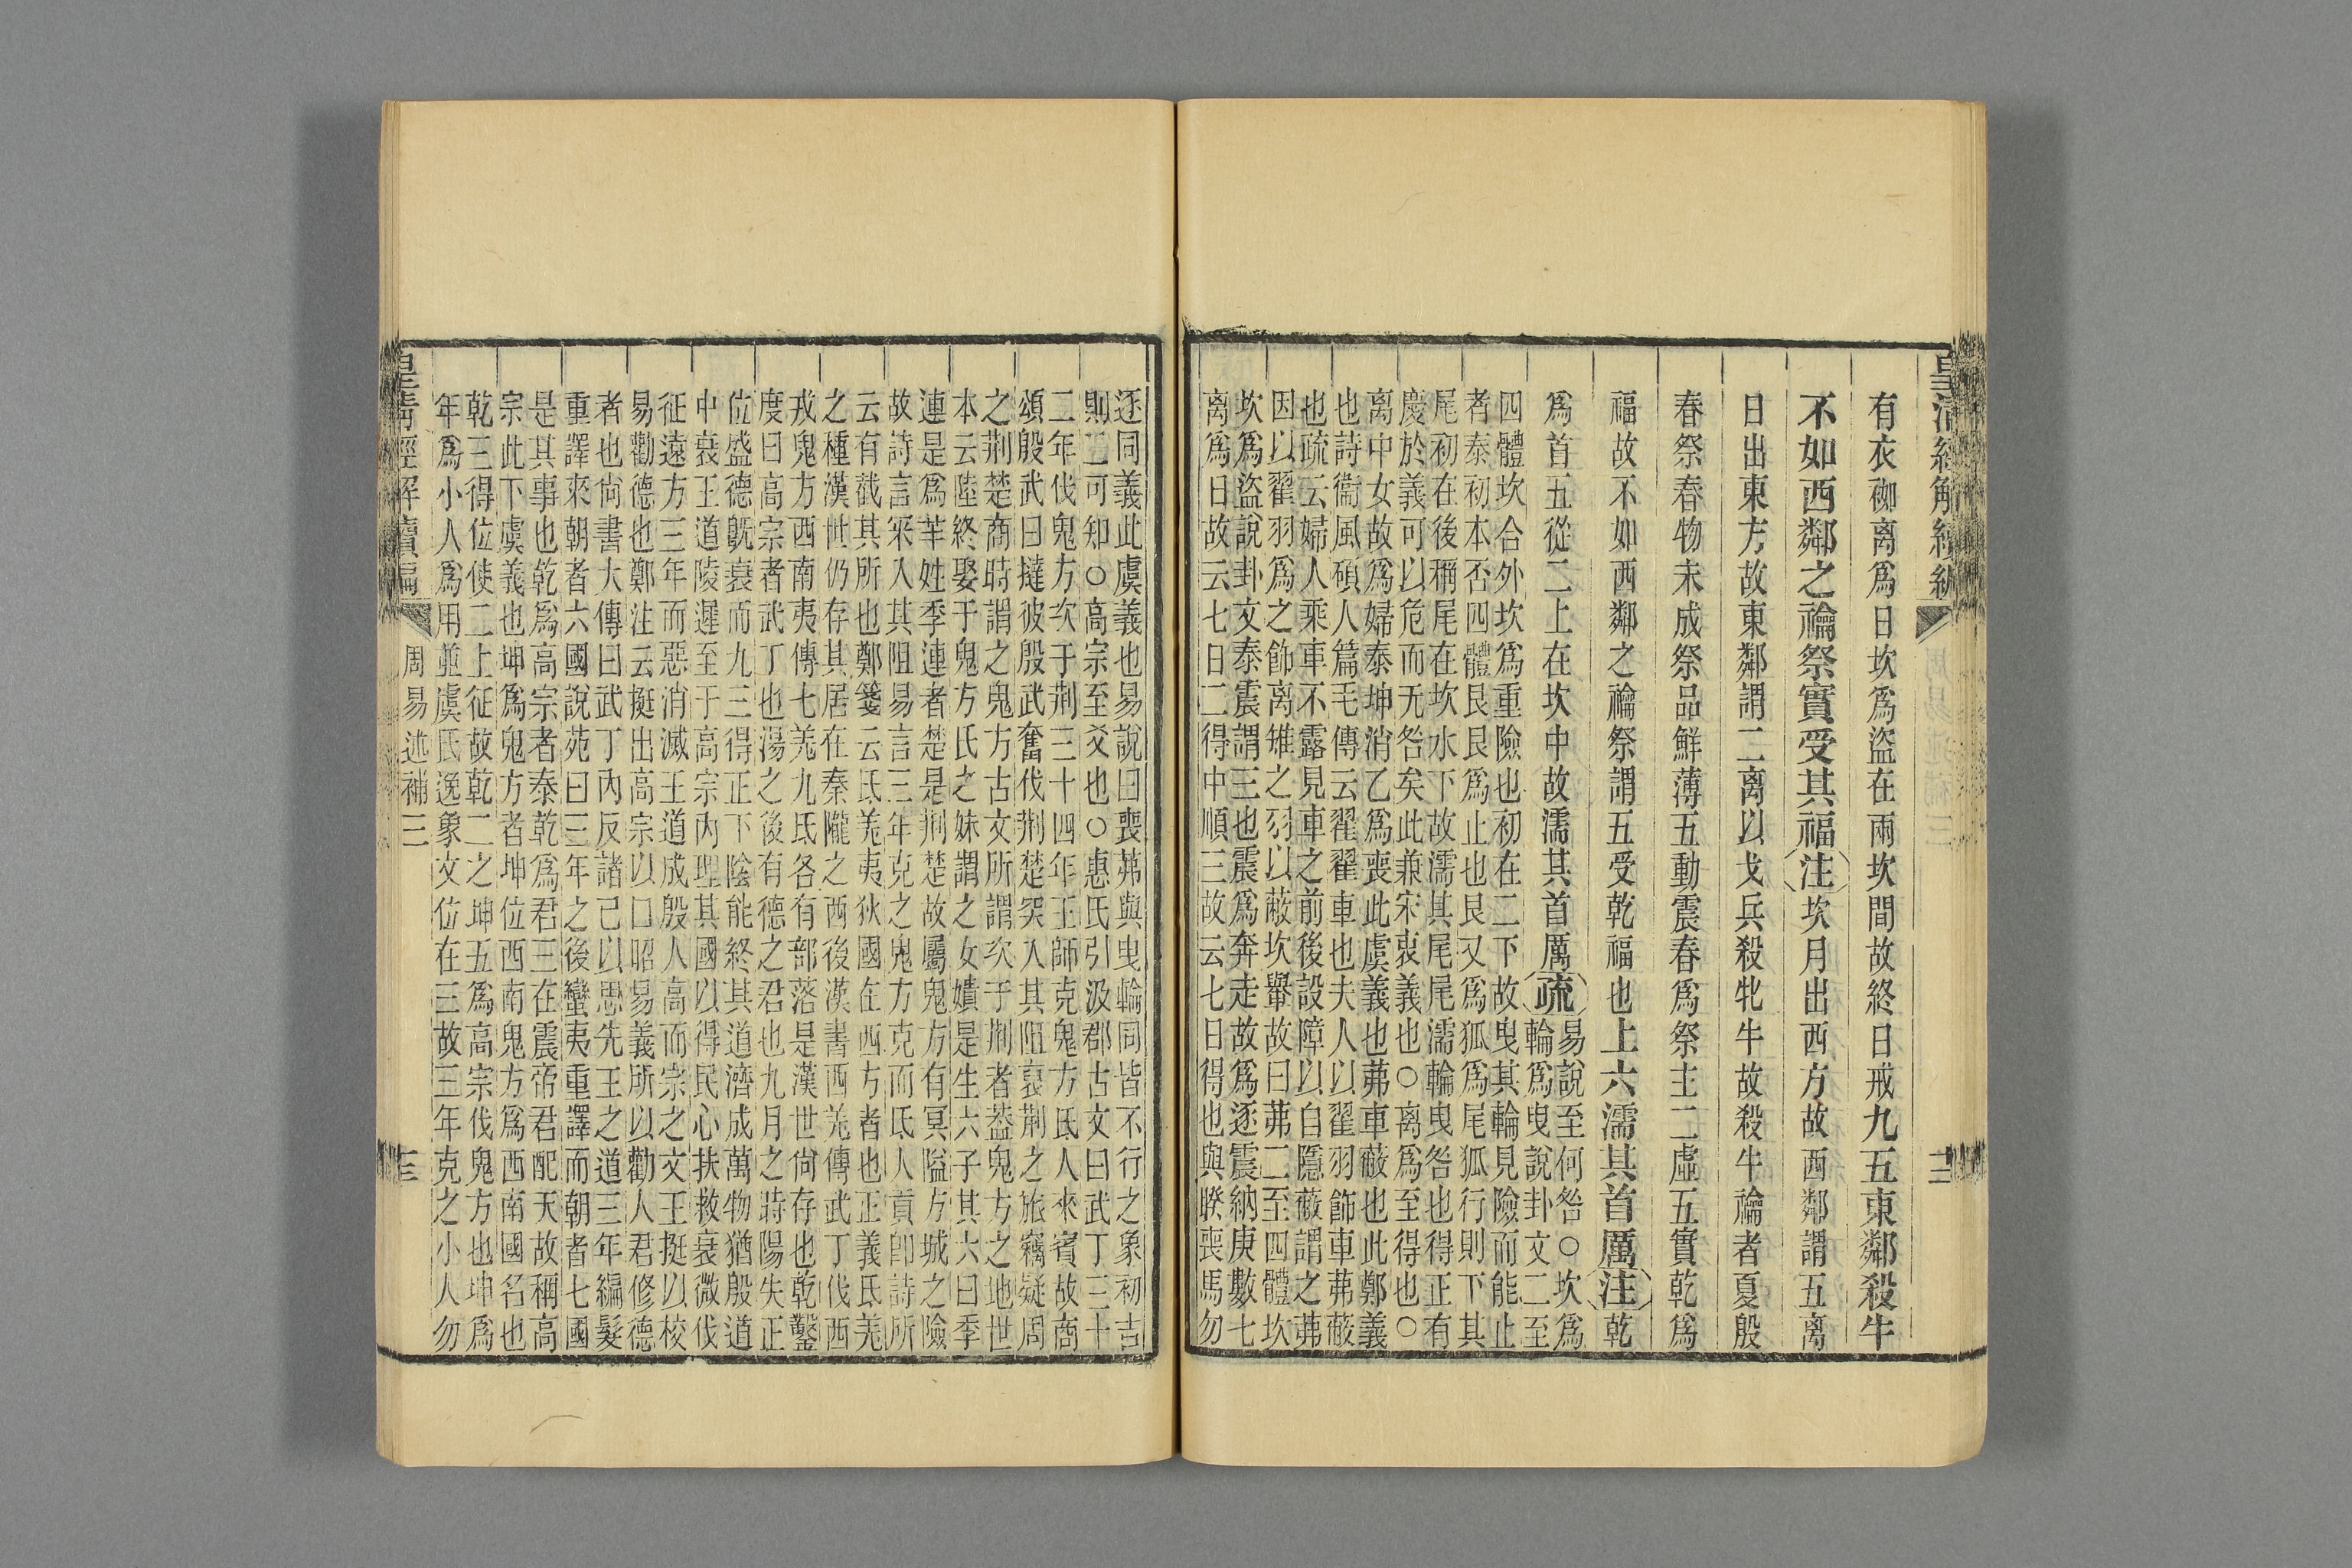 皇清經解續編
有衣袽离爲日坎爲盜在兩坎間故終日戒九五東鄰殺牛
不如西鄰之禴祭實受其福注坎月出西方故西鄰謂五离
日出東方故東鄰謂二离以戈兵殺牝牛故殺牛禴者夏殷
春祭春物未成祭品鮮薄五動震春爲祭主二虛五實乾爲
福故不如西鄰之禴祭謂五受乾福也上六濡其首厲注乾
爲首五從二上在坎中故濡其首厲疏
易說至何咎○坎爲
輪爲曳說卦文二至
四體坎合外坎爲重險也初在二下故曳其輪見險而能止
者泰初本否四體艮艮爲止也艮又爲狐爲尾狐行則下其
尾初在後稱尾在坎水下故濡其尾尾濡輪曳咎也得正有
慶於義可以危而无咎矣此兼宋衷義也○离爲至得也○
离中女故爲婦泰坤消乙爲喪此虞義也茀車蔽也此鄭義
也詩衞風碩人篇毛傳云翟翟車也夫人以翟羽飾車茀蔽
也疏云婦人乘車不露見車之前後設障以白隱蔽謂之茀
因以翟羽爲之飾离雉之羽以蔽坎轝故曰茀二至四體坎
坎爲盜說卦文泰震謂三也震爲奔走故爲逐震納庚數七
离爲日故云七日二得中順三故云七日得也與睽喪馬勿
十二
逐同義此虞義也易說曰喪茀與曳輪同皆不行之象初吉
則二可知○高宗至爻也○惠氏引汲郡古文曰武丁三十
二年伐鬼方次于荆三十四年王師克鬼方氐人來賓故商
頌殷武曰撻彼殷武奮伐荆楚罙入其阻裒荆之旅竊疑周
之荆楚商時謂之鬼方古文所謂次于荆者葢鬼方之地世
本云陸終娶于鬼方氏之妹謂之女嬇是生六子其六曰季
連是爲羋姓季連者楚是荆楚故屬鬼方有冥隘方城之險
故詩言罙入其阻易言三年克之鬼方克而氐人貢卽詩所
云有截其所也鄭箋云氐羌夷狄國在西方者也正義氐羌
之種漢世仍存其居在秦隴之西後漢書西羌傳武丁伐西
戎鬼方西南夷傳七羌九氐各有部落是漢世尙存也乾鑿
度曰高宗者武丁也湯之後有德之君也九月之時陽失正
位盛德旣衰而九三得正下陰能終其道濟成萬物猶殷道
中衰王道陵遲至于高宗內理其國以得民心扶救衰微伐
征遠方三年而惡消滅王道成殷人高而宗之文王挺以校
易勸德也鄭注云挺出高宗以口昭易義所以勸人君修德
者也尙書大傳曰武丁內反諸己以思先王之道三年編髮
重譯來朝者六國說苑曰三年之後蠻夷重譯而朝者七國
是其事也乾爲高宗者泰乾爲君三在震帝君配天故稱高
宗此下虞義也坤爲鬼方者坤位西南鬼方爲西南國名也
乾三得位使二上征故乾二之坤五爲高宗伐鬼方也坤爲
年爲小人爲用並虞氏逸象文位在三故三年克之小人勿
皇清經解續編
周易述補三
十三